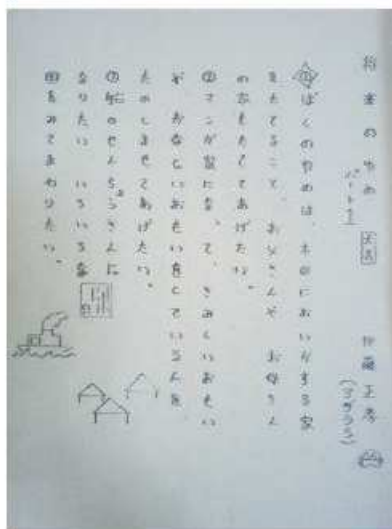 将来のゆめ
パート1
①ぼくのゆめは、木のにおいがする家
をたてること。お父さんや お母さん
の家もたててあげたい。
②マンガ家になって、さみしいおもい
や かなしいおもいをしている人を
たのしませてあげたい。
⑦船のせんちょうさんに
なりたい いろいろな
国をみてまわりたい。